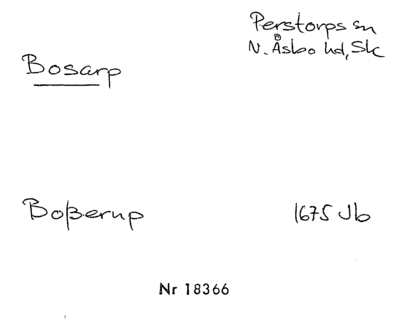 Perstorps sn
N. Åsbo hd, Sk
Bosarp
Boßerup
1675 Jb
Nr 18366